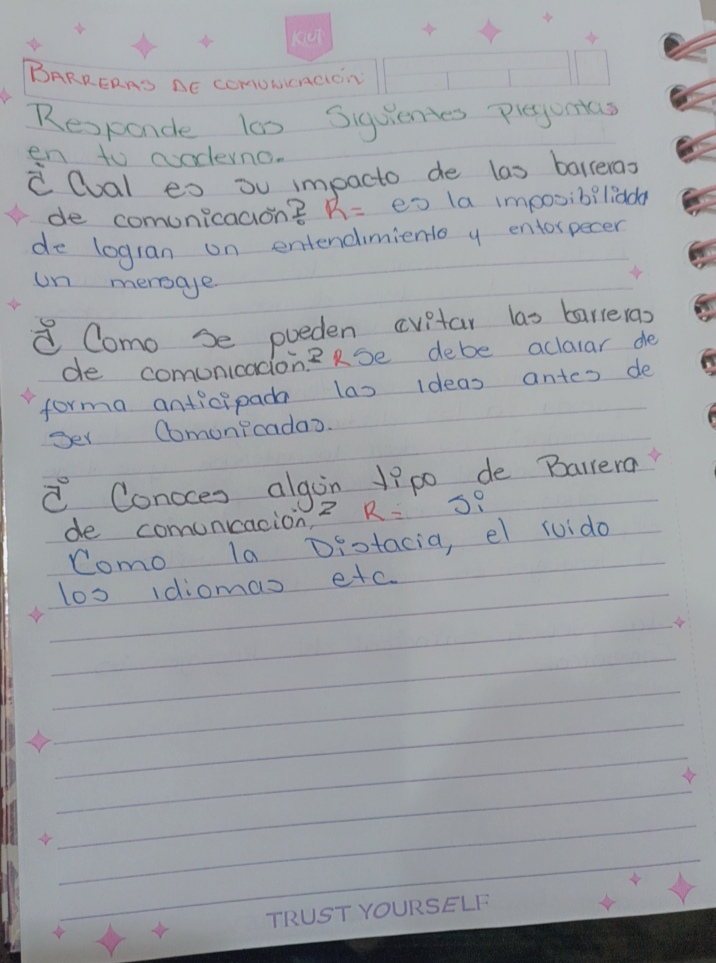 KIUT
BARRERAS DE COMUNICACIÓN
Responde las Siguientes Preguntas
en tu cuaderno.
¿ Cual es su impacto de las barreras
de comunicación? R= es la imposibilidad
de logran un entendimiento y entorpecer
un mensaje
¿ Como se pueden evitar las barreras
de comunicación? R Se debe aclarar de
forma anticipada las ideas antes de
Ser Comunicadas.
¿ Conoces algún tipo de Barrera
de comunicación? R= Si
Como la Distacia, el ruido
los idiomas etc.
TRUST YOURSELF